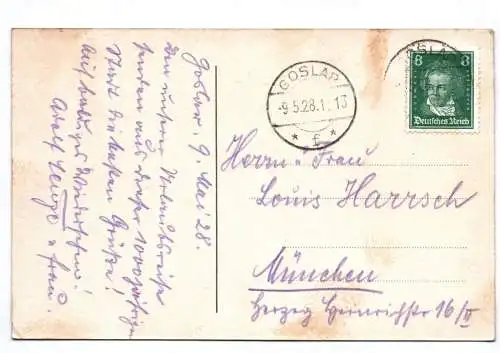 Goslar, 9. Mai 28.
Von unserer Urlaubsreise
senden aus dieser 1000jährigen
Stadt die besten Grüße!
Auf baldiges Wiedersehen!
Adolf u. Frau.
GOSLAR
-9.5.28.1
* f *
GOSLAR
8 8
Deutsches Reich
Herrn u. Frau
Louis Harrsch
München
Herzog Heinrichstr 16/II